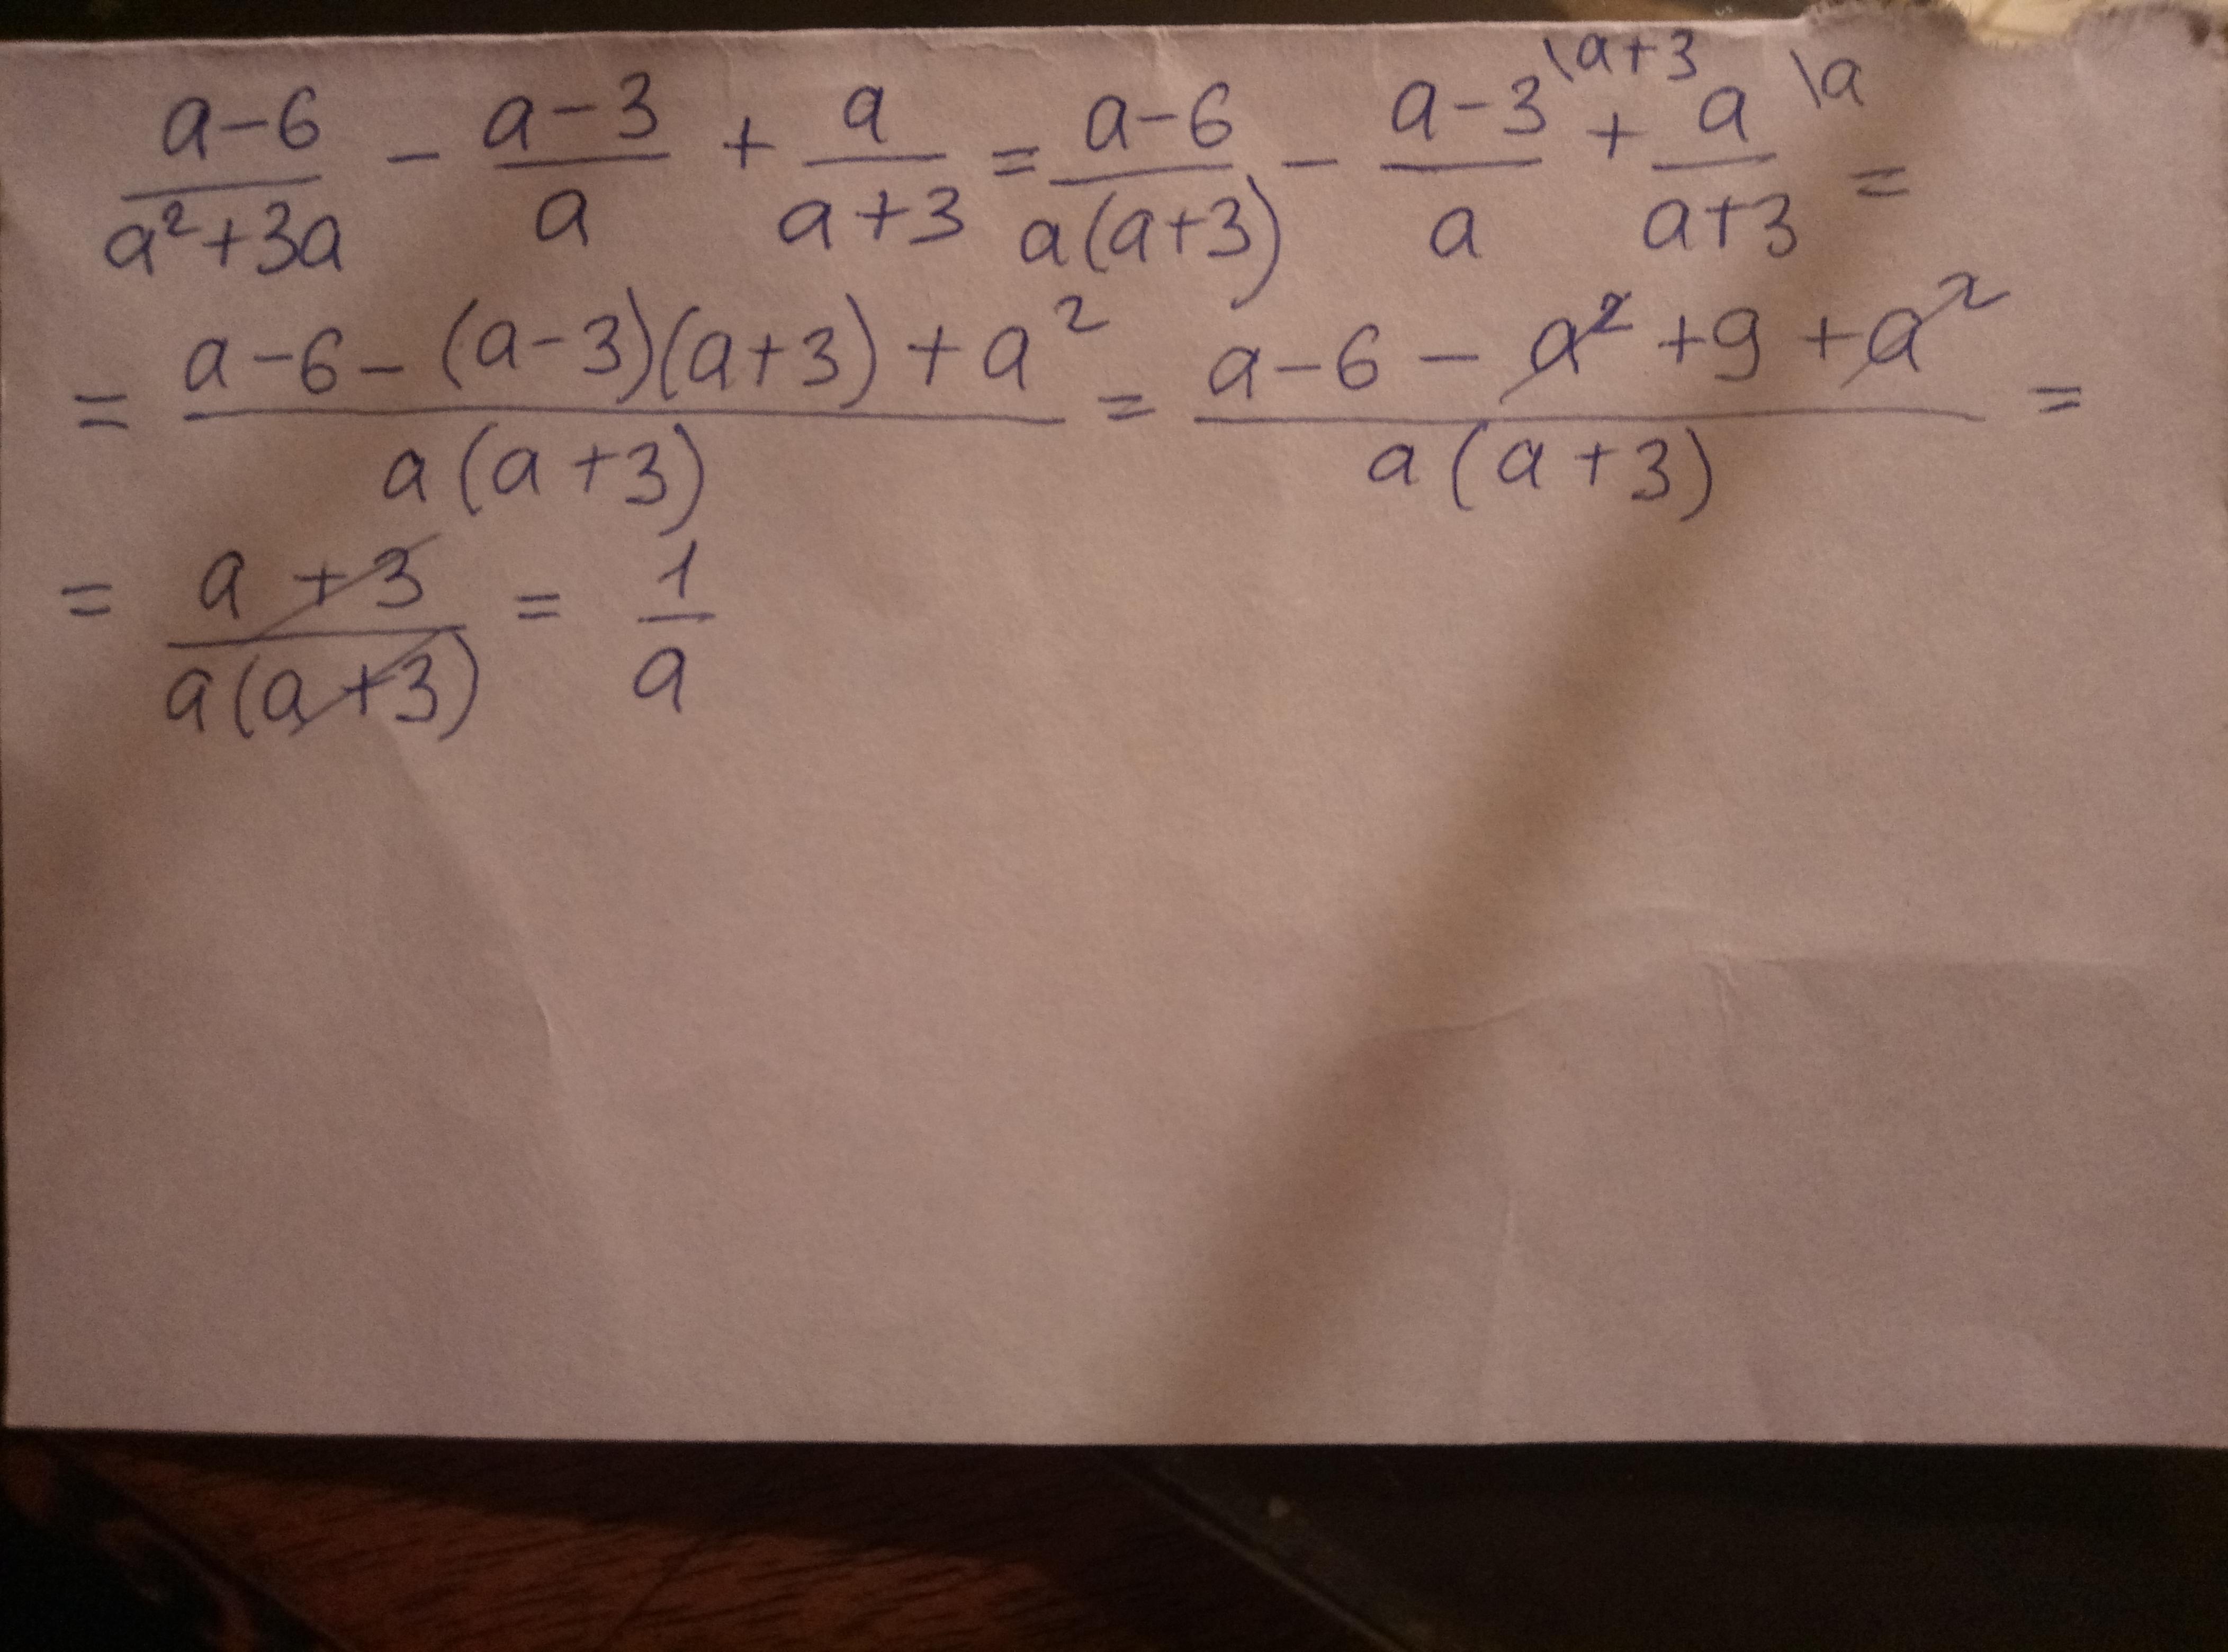 (a-6)/(a²+3a) - (a-3)/a + a/(a+3) = (a-6)/(a(a+3)) - (a-3)/a \a+3 + a/(a+3) \a =
= (a-6-(a-3)(a+3)+a²)/(a(a+3)) = (a-6-a²+9+a²)/(a(a+3)) =
= (a+3)/(a(a+3)) = 1/a